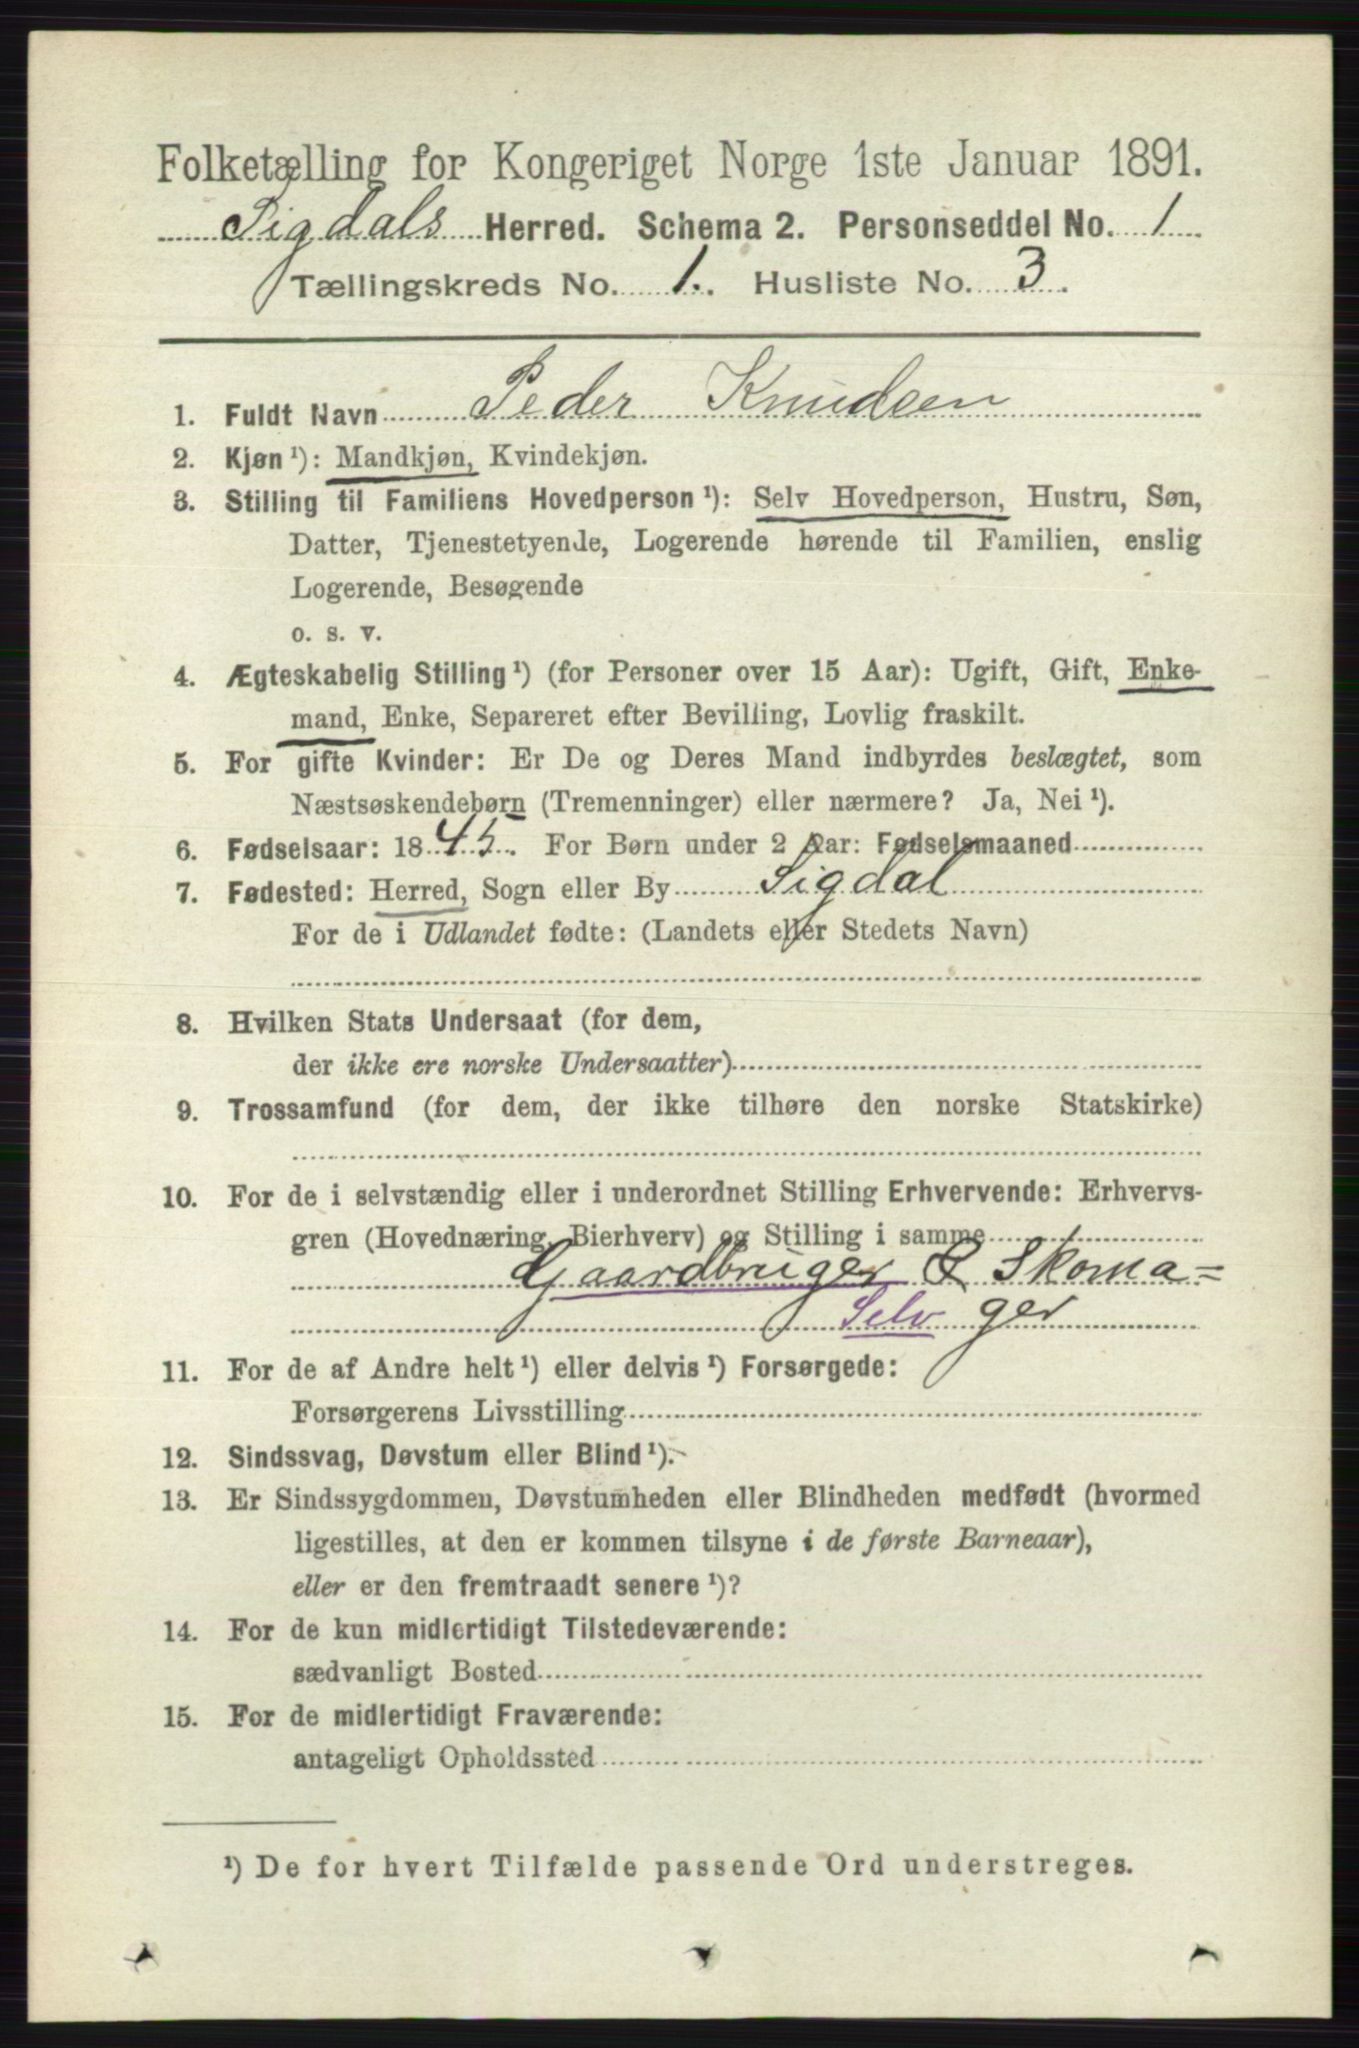 Folketælling for Kongeriget Norge 1ste Januar 1891.
Sigdals Herred. Schema 2. Personseddel No. 1
Tællingskreds No. 1. Husliste No. 3.
1. Fuldt Navn Peder Knudsen
2. Kjøn ¹): Mandkjøn, Kvindekjøn.
3. Stilling til Familiens Hovedperson ¹): Selv Hovedperson, Hustru, Søn,
Datter, Tjenestetyende, Logerende hørende til Familien, enslig
Logerende, Besøgende
o. s. v.
4. Ægteskabelig Stilling ¹) (for Personer over 15 Aar): Ugift, Gift, Enke-
mand, Enke, Separeret efter Bevilling, Lovlig fraskilt.
5. For gifte Kvinder: Er De og Deres Mand indbyrdes beslægtet, som
Næstsøskendebørn (Tremenninger) eller nærmere? Ja, Nei ¹).
6. Fødselsaar: 1845. For Børn under 2 Aar: Fødselsmaaned
7. Fødested: Herred, Sogn eller By Sigdal
For de i Udlandet fødte: (Landets eller Stedets Navn)
8. Hvilken Stats Undersaat (for dem,
der ikke ere norske Undersaatter)
9. Trossamfund (for dem, der ikke tilhøre den norske Statskirke)
10. For de i selvstændig eller i underordnet Stilling Erhvervende: Erhvervs-
gren (Hovednæring, Bierhverv) og Stilling i samme
Gaardbruger & Skoma=
Selv ger
11. For de af Andre helt ¹) eller delvis ¹) Forsørgede:
Forsørgerens Livsstilling
12. Sindssvag, Døvstum eller Blind ¹).
13. Er Sindssygdommen, Døvstumheden eller Blindheden medfødt (hvormed
ligestilles, at den er kommen tilsyne i de første Barneaar),
eller er den fremtraadt senere ¹)?
14. For de kun midlertidigt Tilstedeværende:
sædvanligt Bosted
15. For de midlertidigt Fraværende:
antageligt Opholdssted
¹) De for hvert Tilfælde passende Ord understreges.